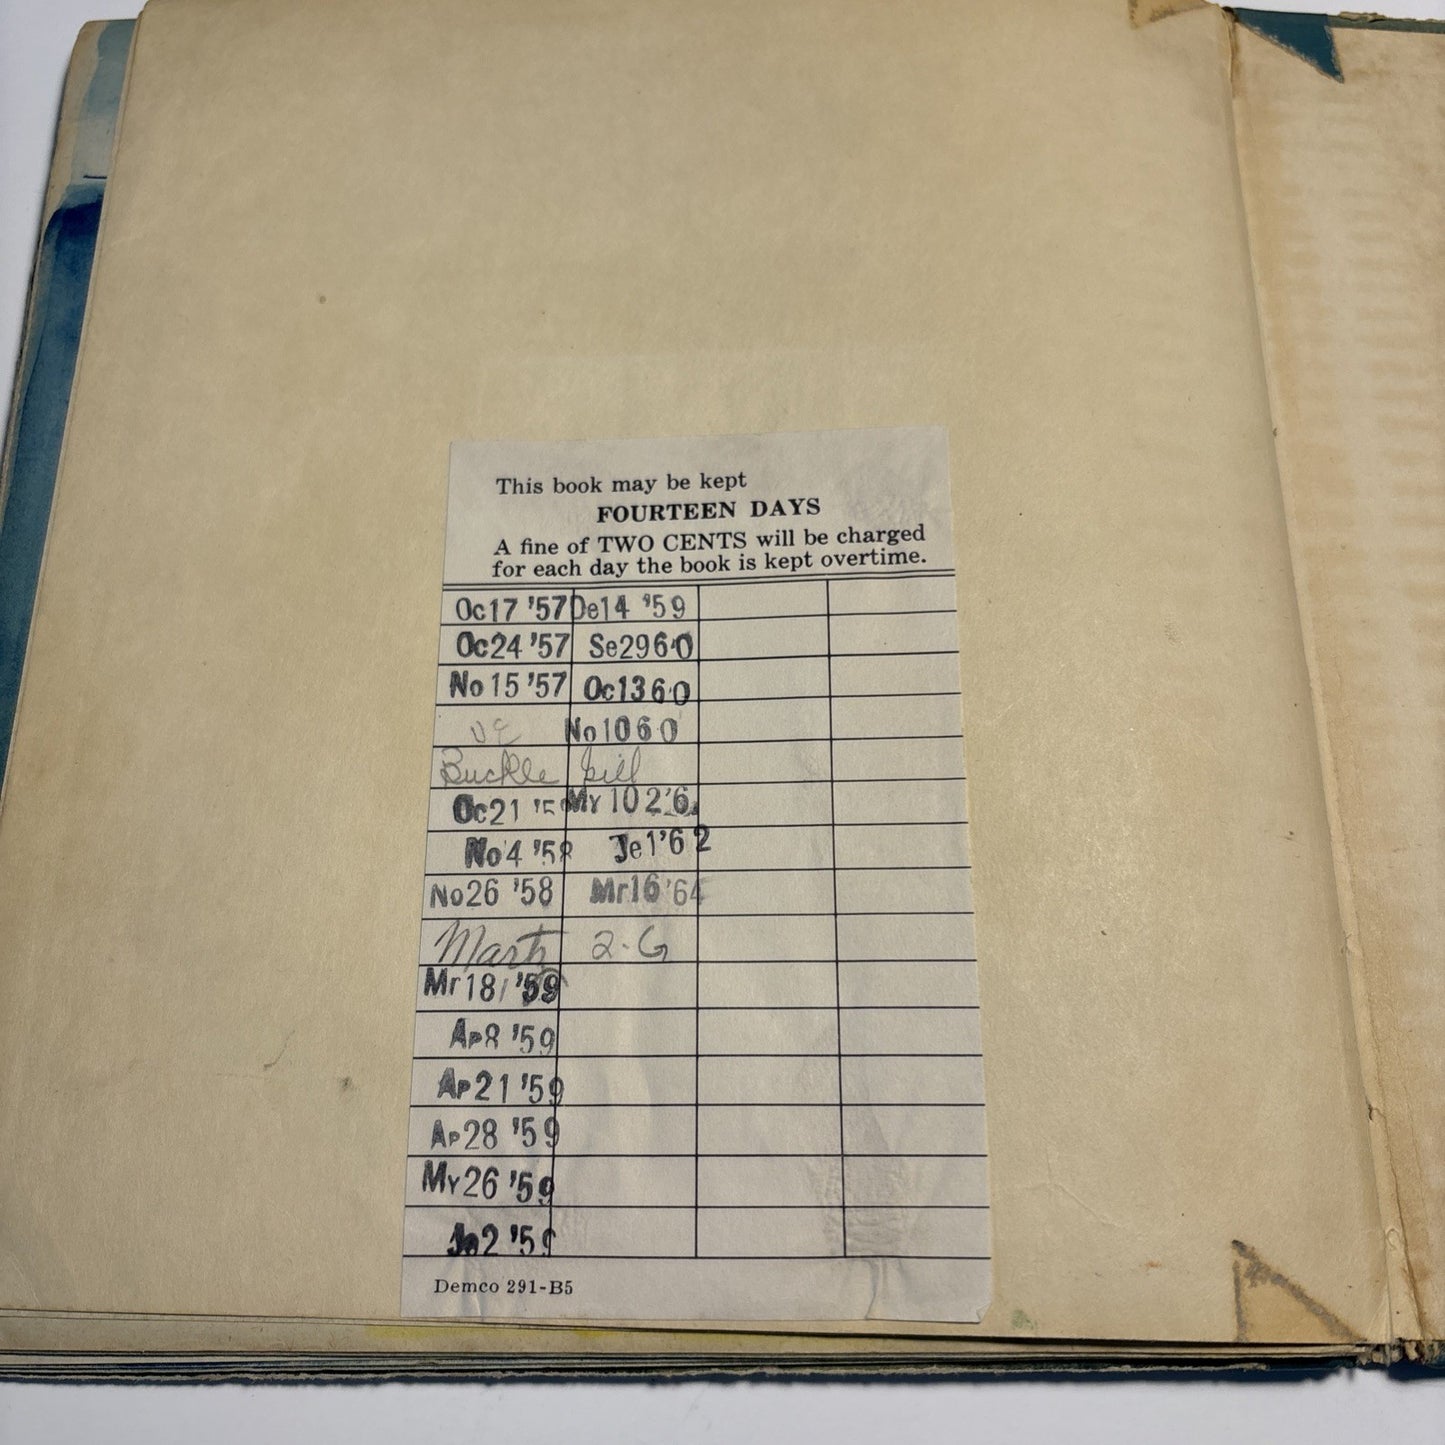 This book may be kept
FOURTEEN DAYS
A fine of TWO CENTS will be charged
for each day the book is kept overtime.
Oc17 '57 De14 '59
Oc24 '57 Se29 60
No 15 '57 Oc13 60
No10 60
Buckle
Oc21 '5 My 10 2'6
No4 '58 Je1'6 2
No26 '58 Mr16 '64
2-G
Mr18 '59
Ap8 '59
Ap21 '59
Ap28 '59
My26 '59
2 '59
Demco 291-B5